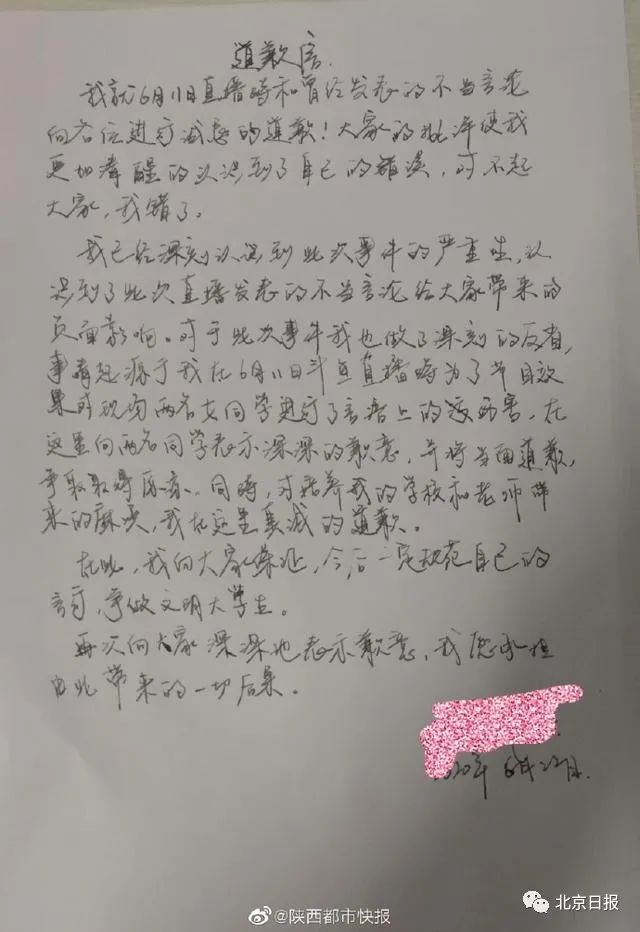 道歉信
我就6月11日直播时和曾经发表的不当言论
向各位进行诚恳的道歉!大家的批评使我
更加清醒的认识到了自己的错误,对不起
大家,我错了。
我已经深刻认识到此次事件的严重性,认
识到了此次直播发表的不当言论给大家带来的
负面影响。对于此次事件我也做了深刻的反省,
事情起源于我在6月11日斗鱼直播时为了节目效
果对现场两名女同学进行了言语上的伤害,在
这里向两名同学表示深深的歉意,并将当面道歉,
争取取得原谅。同时,对培养我的学校和老师带
来的麻烦,我在这里真诚的道歉。
在此,我向大家保证,今后一定规范自己的
言行,争做文明大学生。
再次向大家深深地表示歉意,我愿承担
由此带来的一切后果。
2020年6月22日.
@陕西都市快报
北京日报